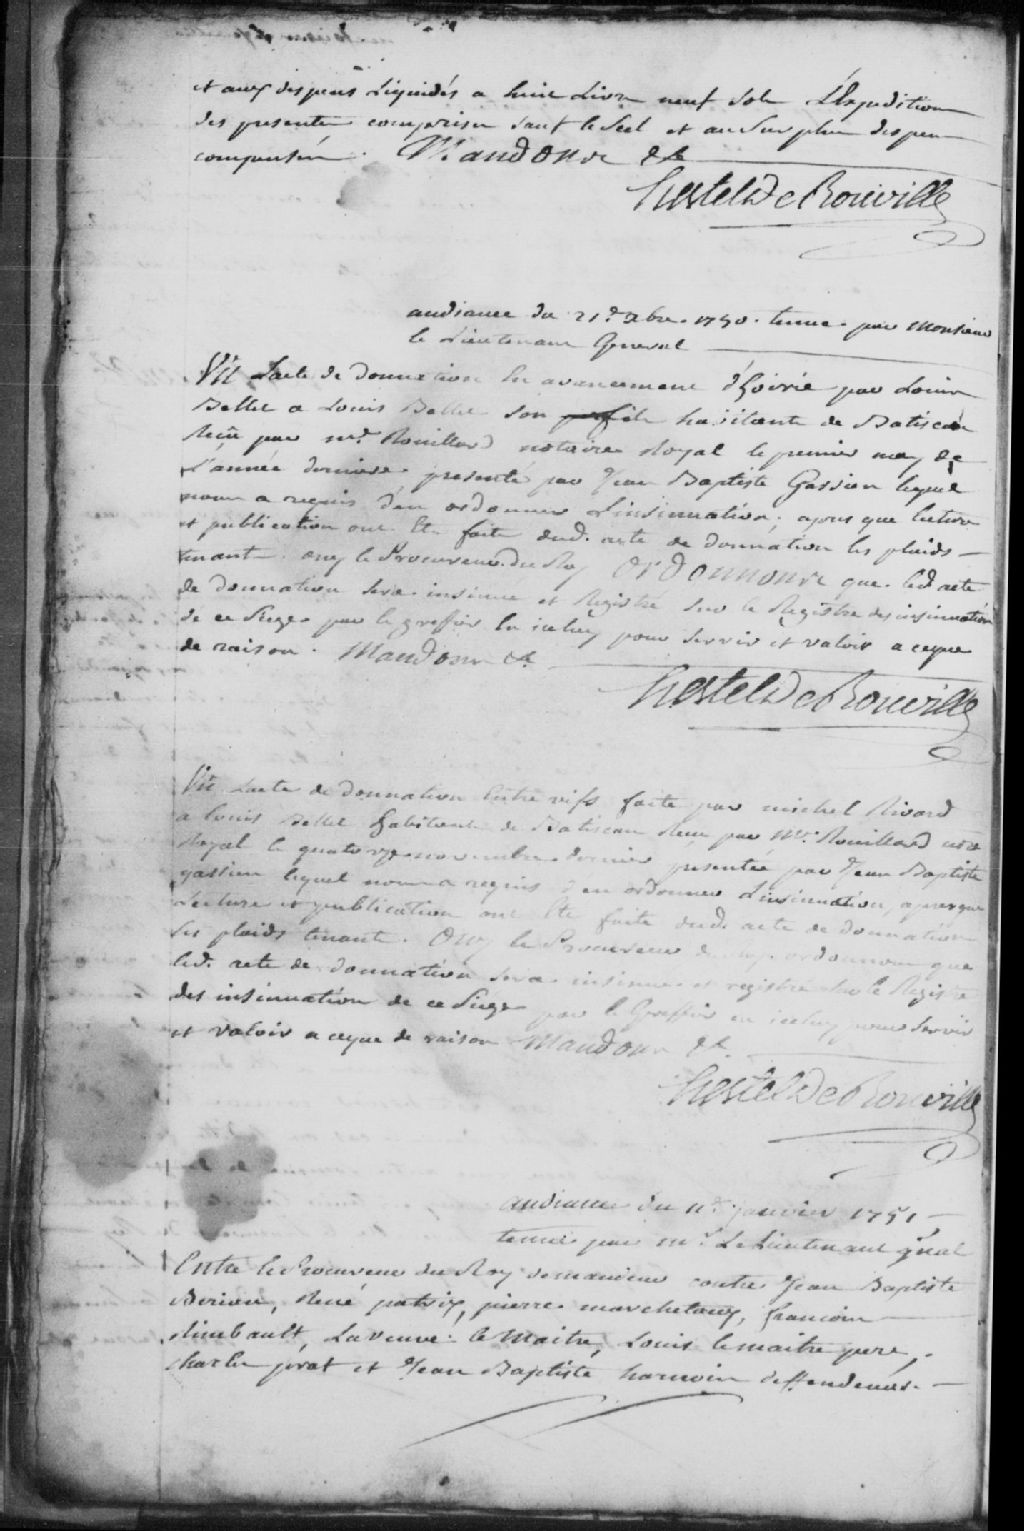 et aux dispens Liquidés a huit Livre neuf Sols L'Expedition
des presente comprise sauf le Scel et au Surplus dispen
compensés. Mandons &a
hertel De Rouville
audiance du 21e Xbre 1750. tenue par Monsieur
le Lieutenant General
Vû Lacte de donnation En avancement d'hoirie par Louis
Bellet a Louis Bellet Son fils habitants de Batiscan
Reçu par me. Rouillard notaire Royal le premier may de
L'année derniere, presenté par Jean Baptiste Gassien lequel
nous a requis d'en ordonner L'insinuation; apres que lecture
et publication ont Eté faite dud. acte de donnation les plaids
tenant. ouy le Procureur du Roy Ordonnons que led acte
de donnation sera insinué et Registré Sur le Registre des insinuation
de ce Siege par le greffier En iceluy pour Servir et valoir a ceque
de raison. Mandons &a.
hertel De Rouville
Vû Lacte de donnation Entre vifs faite par michel Rivard
a Louis Bellet habitant de Batiscan Reçu par Me. Rouillard notre
Royal le quatorze novembre dernier presentée par Jean Baptiste
gassien lequel nous a requis d'en ordonner L'insinuation, apres que
Lecture et publication ont Eté faite dud. acte de donnation
les plaids tenants. Ouy le Procureur du Roy. ordonnons que
led. acte de donnation sera insinué et registré Sur le Registre
des insinuation de ce Siege par le Greffier en iceluy pour Servir
et valoir a ceque de raison Mandons &a.
hertel De Rouville
audiance du 11e janvier 1751,
tenue par mr. Le Lieutenant gñal
Entre le Procureur du Roy demandeur contre Jean Baptiste
René patrix, pierre marchetaux, francois
Rimbault, La veuve le Maitre, Louis lemaitre pere,
Charles prat et Jean Baptiste harnois deffendeurs.